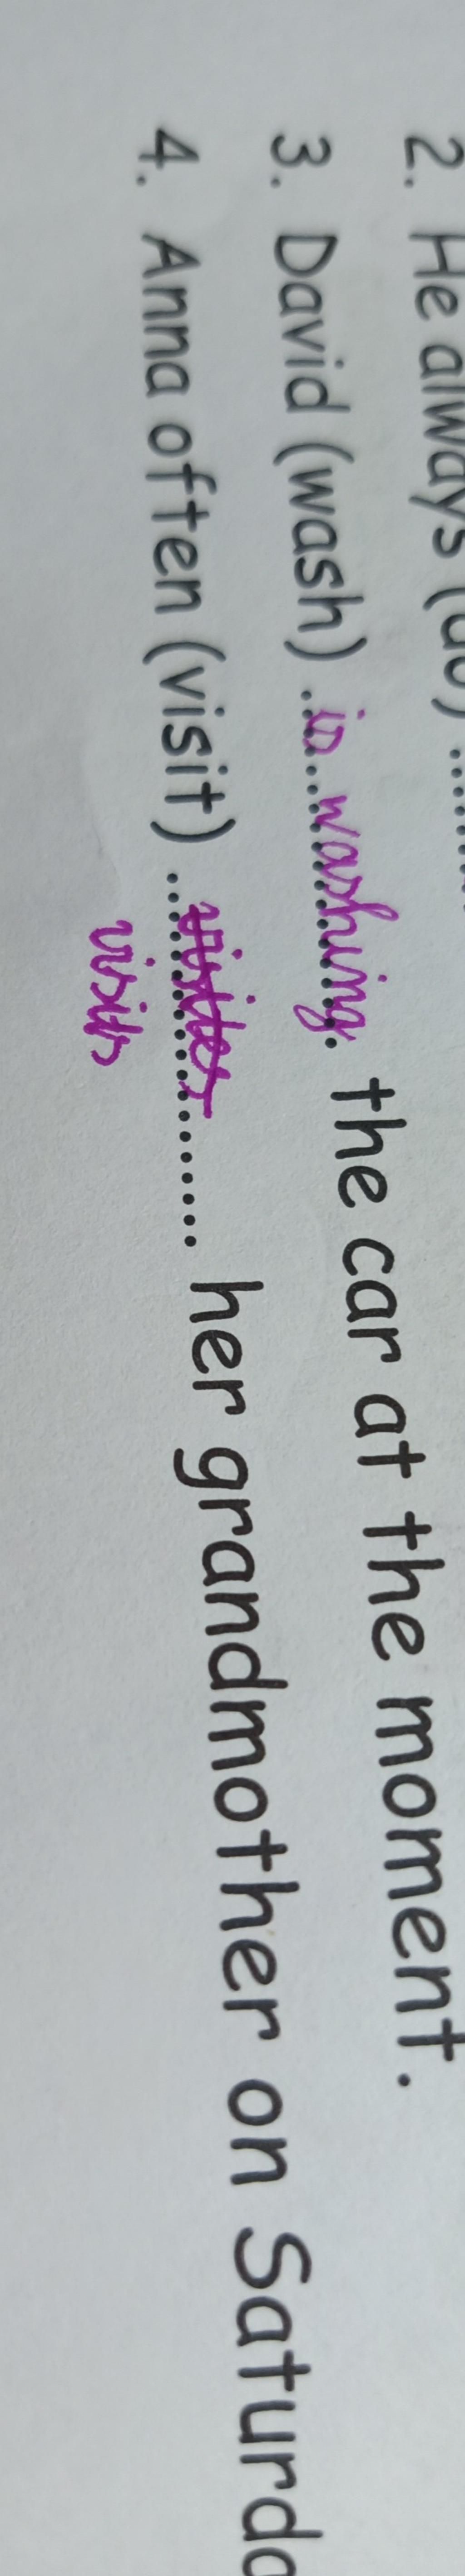 2. He always (do) ........
3. David (wash) ..is washing. the car at the moment.
4. Anna often (visit) ............... her grandmother on Saturda
visits